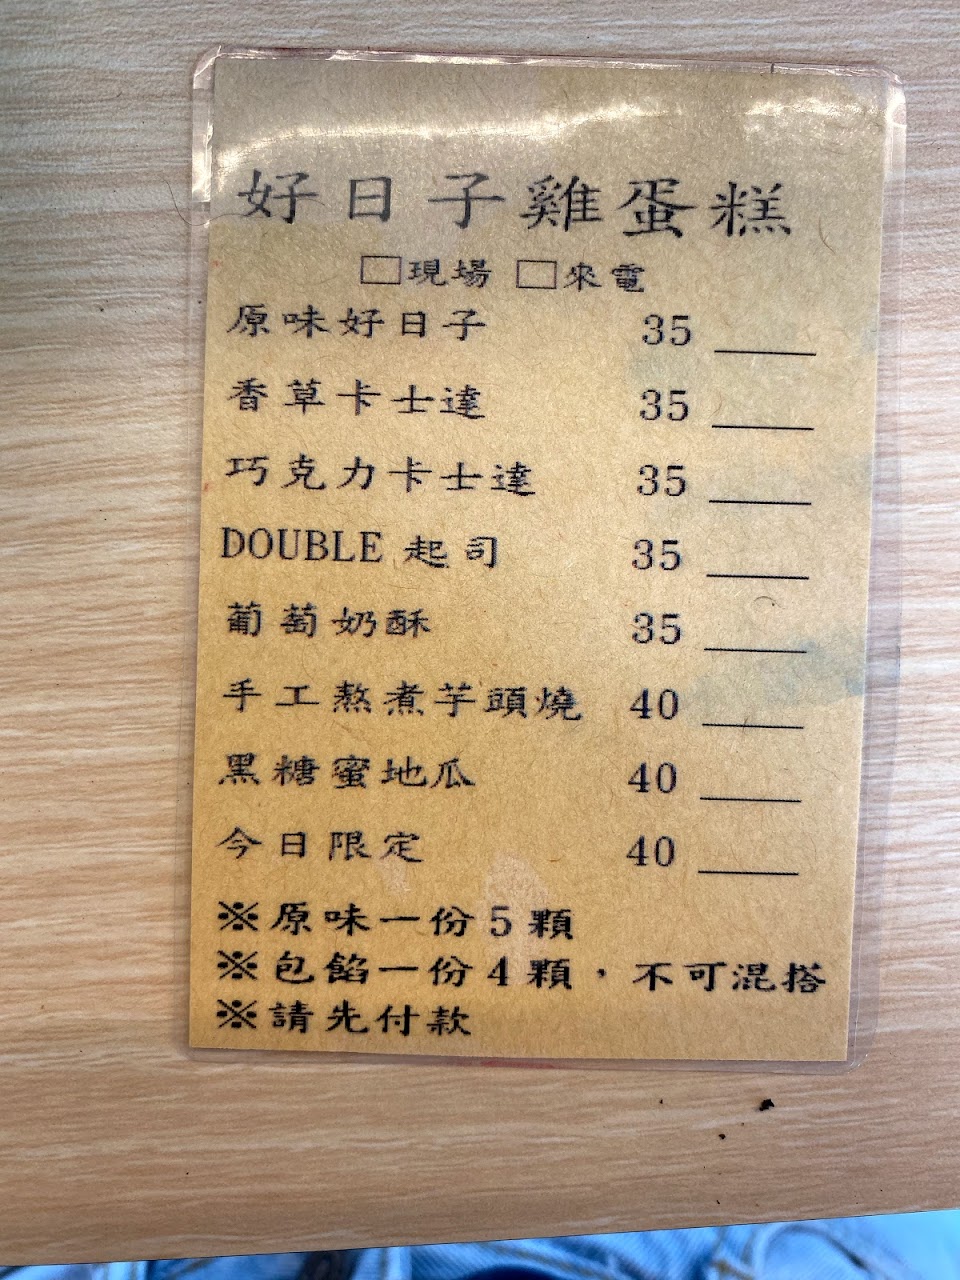 好日子雞蛋糕
□現場 □來電
原味好日子 35 ____
香草卡士達 35 ____
巧克力卡士達 35 ____
DOUBLE 起司 35 ____
葡萄奶酥 35 ____
手工熬煮芋頭燒 40 ____
黑糖蜜地瓜 40 ____
今日限定 40 ____
※原味一份5顆
※包餡一份4顆，不可混搭
※請先付款